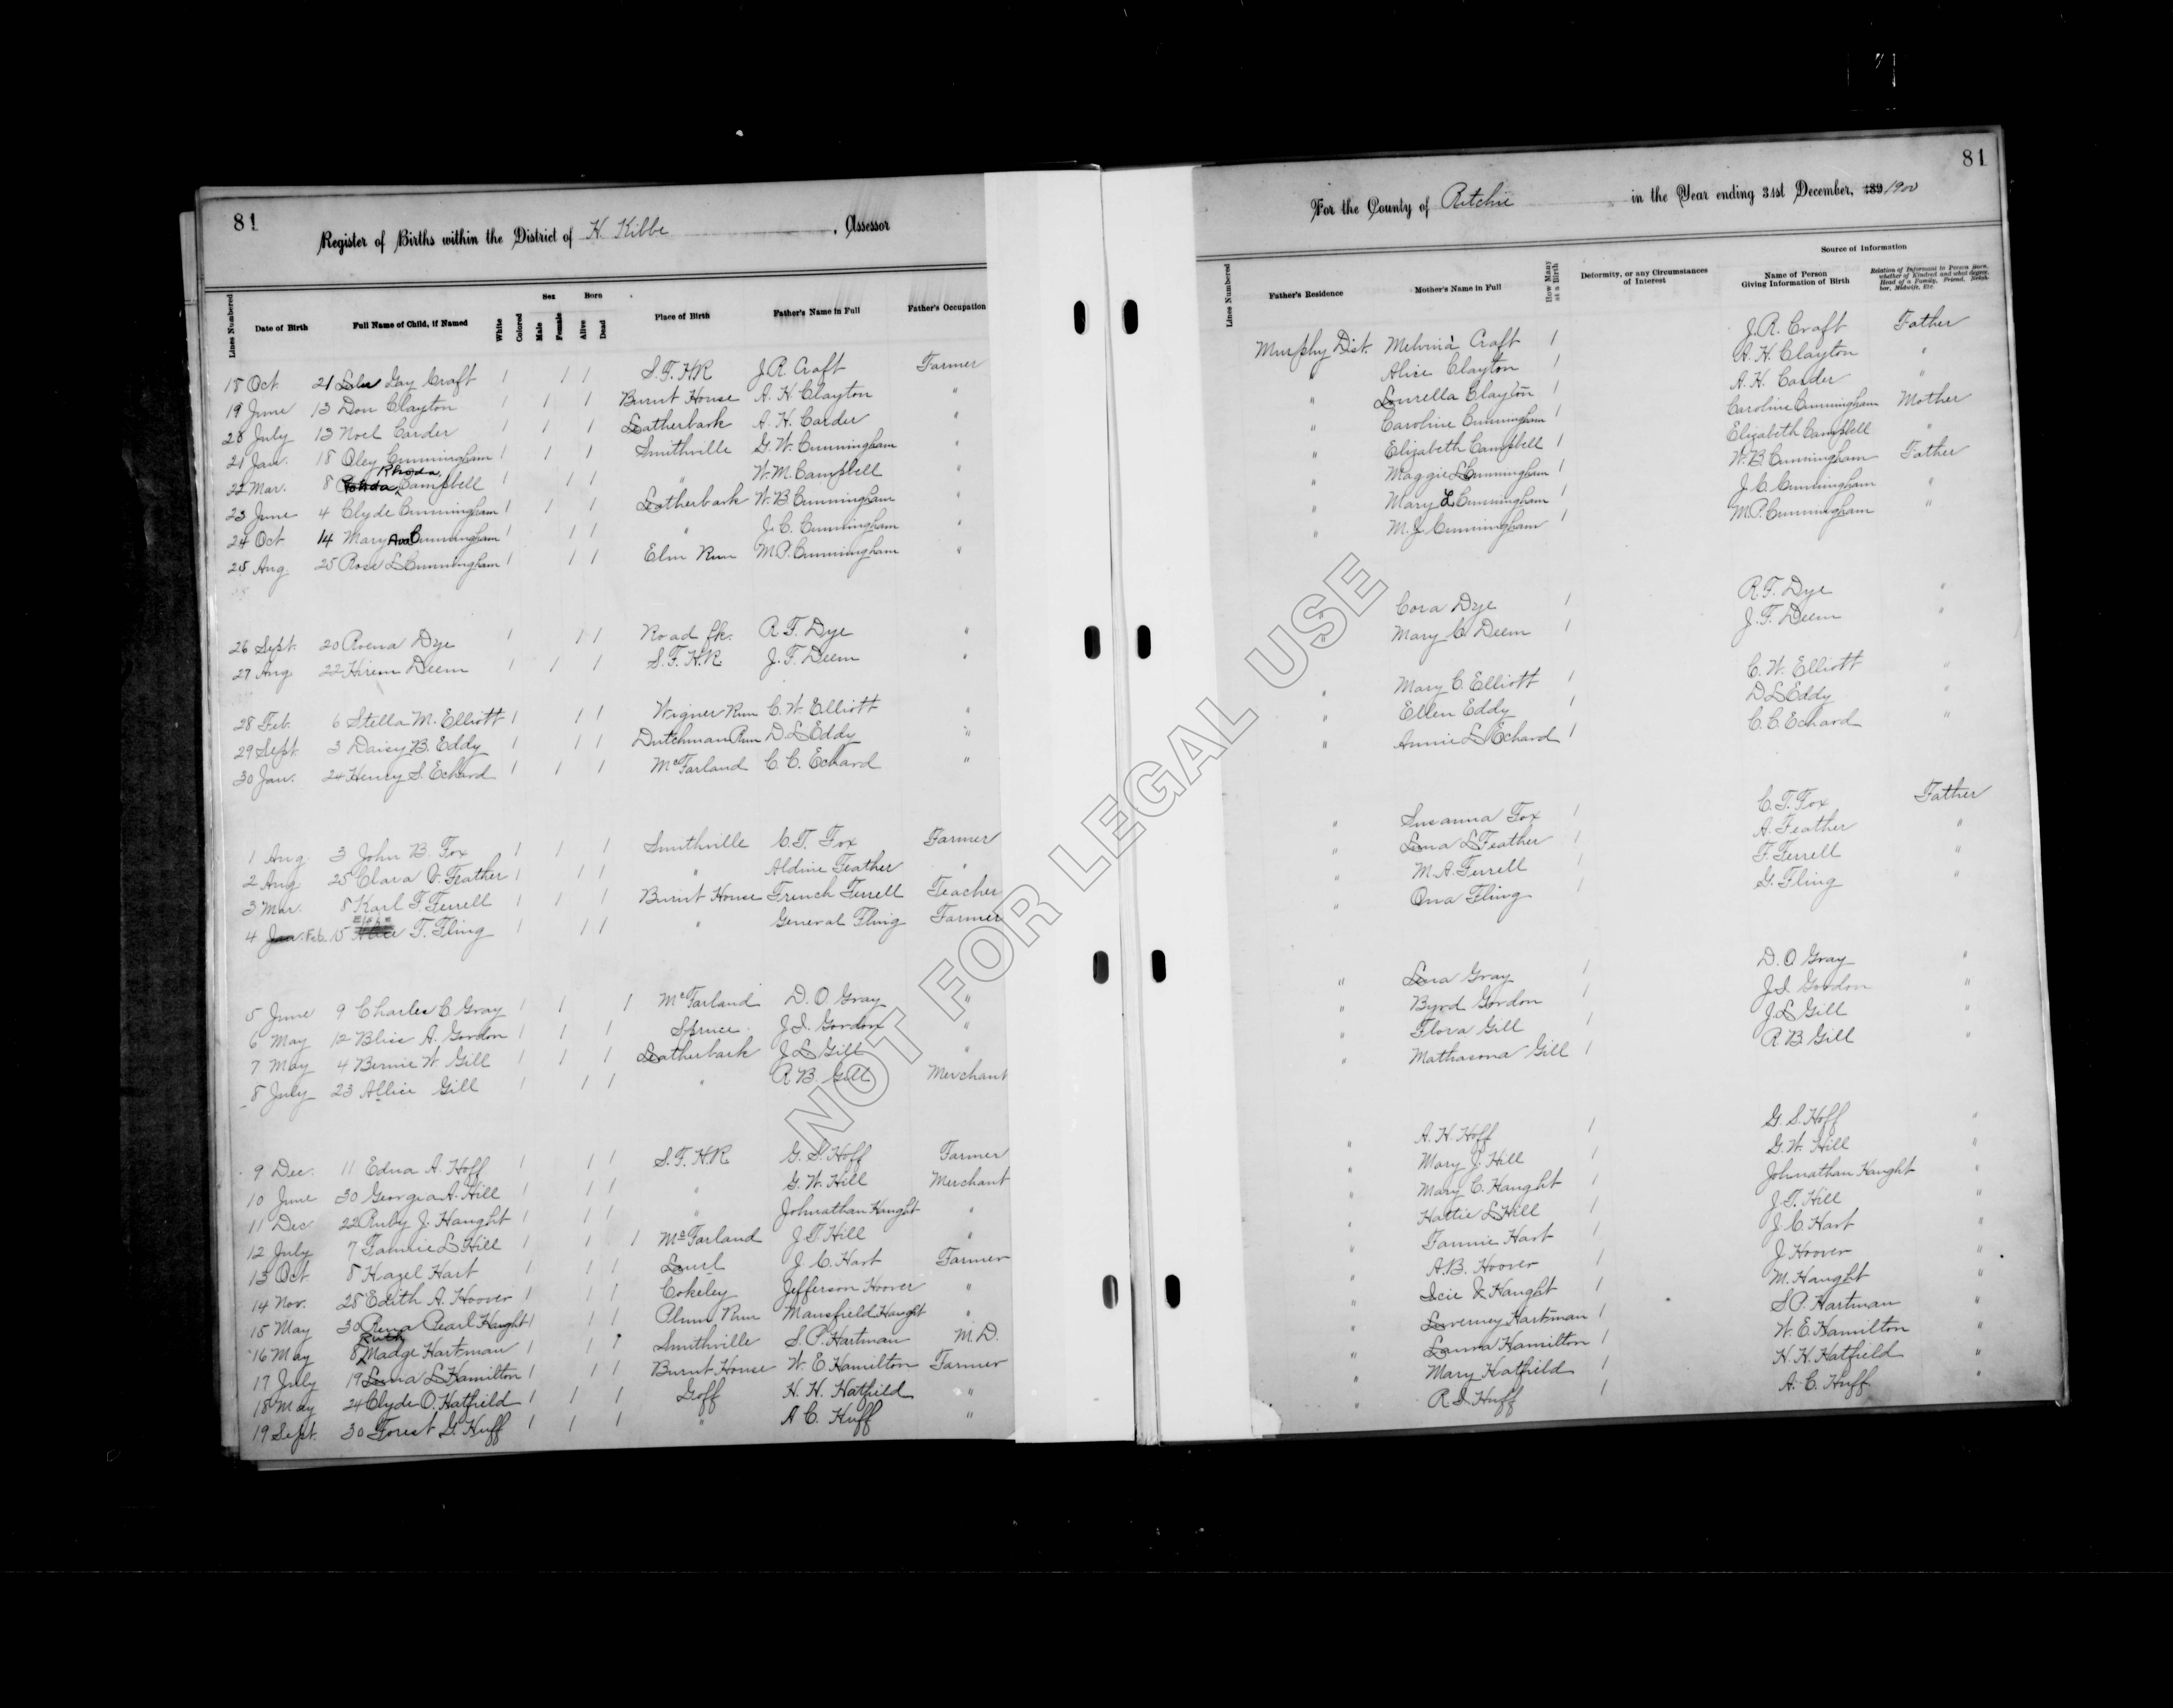 81
Register of Births within the District of H. Kibbe, Assessor
Lines Numbered Date of Birth Full Name of Child, if Named White Colored Sex Male Female Born Alive Dead Place of Birth Father's Name in Full Father's Occupation
18 Oct 21 Gay Craft 1 1 1 S.F.H.R J.R. Craft Farmer
19 June 13 Don Clayton 1 1 1 Burnt House A.H. Clayton "
20 July 13 Noel Carder 1 1 1 Leatherbark A.H. Carder "
21 Jan. 18 Oley Cunningham 1 1 1 Smithville G.W. Cunningham "
22 Mar. 8 Rhoda Campbell 1 1 1 " W.M. Campbell "
23 June 4 Clyde Cunningham 1 1 1 Leatherbark W.B Cunningham "
24 Oct 14 Mary Ava Cunningham 1 1 1 " J.C. Cunningham "
25 Aug 25 Rose L Cunningham 1 1 1 Elm Run M.P. Cunningham "
26 Sept. 20 Roena Dye 1 1 1 Road fk. R.F. Dye "
27 Aug 22 Hirem Deem 1 1 1 S.F.H.R. J.F. Deem "
28 Feb. 6 Stella M. Elliott 1 1 1 Wigner Run C.W. Elliott "
29 Sept. 3 Daisy B. Eddy 1 1 1 Dutchman Run D.L Eddy "
30 Jan. 24 Henry S. Echard 1 1 1 McFarland C.C. Echard "
1 Aug 3 John B. Fox 1 1 1 Smithville C.T. Fox Farmer
2 Aug 25 Clara V. Feather 1 1 1 " Aldine Feather "
3 Mar. 8 Karl F. Ferrell 1 1 1 Burnt House French Ferrell Teacher
4 Feb. 15 T. Fling 1 1 1 " General Fling Farmer
5 June 9 Charles C. Gray 1 1 1 McFarland D.O. Gray "
6 May 12 Blice A. Gordon 1 1 1 Spruce J.I. Gordon "
7 May 4 Bernie W. Gill 1 1 1 Leatherbark J L Gill "
8 July 23 Allice Gill 1 1 1 " R.B. Gill Merchant
9 Dec. 11 Edna A. Hoff 1 1 1 S.F.H.R. G.S. Hoff Farmer
10 June 30 Georgia A. Hill 1 1 1 " G.W. Hill Merchant
11 Dec 22 Ruby J. Haught 1 1 1 " Johnathan Haught "
12 July 7 Fannie L Hill 1 1 1 McFarland J.T. Hill "
13 Oct. 8 Hazel Hart 1 1 1 Laurel J.C. Hart Farmer
14 Nov. 28 Edith A. Hoover 1 1 1 Cokeley Jefferson Hoover "
15 May 30 Rena Pearl Haught 1 1 1 Plum Run Mansfield Haught "
16 May 8 Ruth Madge Hartman 1 1 1 Smithville S.P. Hartman M.D.
17 July 19 Lena L Hamilton 1 1 1 Burnt House W.E. Hamilton Farmer
18 May 24 Clyde O. Hatfield 1 1 1 Goff H.H. Hatfield "
19 Sept. 30 Forest G. Huff 1 1 1 " A C. Huff "
81
For the County of Ritchie in the Year ending 31st December, 189 1900
Lines Numbered Father's Residence Mother's Name in Full How Many at a Birth Deformity, or any Circumstances of Interest Source of Information Name of Person Giving Information of Birth Relation of Informant to Person Born, whether of Kindred and what degree, Head of a Family, Friend, Neighbor, Midwife, Etc.
Murphy Dist. Melvina Craft 1 J.R. Craft Father
" Alice Clayton 1 A.H. Clayton "
" Lurella Clayton 1 A.H. Carder "
" Caroline Cunningham 1 Caroline Cunningham Mother
" Elizabeth Campbell 1 Elizabeth Campbell "
" Maggie L Cunningham 1 W.B Cunningham Father
" Mary L Cunningham 1 J.C. Cunningham "
" M.J. Cunningham 1 M.P. Cunningham "
" Cora Dye 1 R.F. Dye "
" Mary C Deem 1 J.F. Deem "
" Mary C. Elliott 1 C.W. Elliott "
" Ellen Eddy 1 D L Eddy "
" Annie L Echard 1 C.C. Echard "
" Susanna Fox 1 C.T. Fox Father
" Lena L Feather 1 A. Feather "
" M.A. Ferrell 1 F. Ferrell "
" Ona Fling 1 G. Fling "
" Lena Gray 1 D.O Gray "
" Byrd Gordon 1 J.I. Gordon "
" Flora Gill 1 J L Gill "
" Mathasona Gill 1 R B. Gill "
" A.H. Hoff 1 G.S. Hoff "
" Mary J. Hill 1 G.W. Hill "
" Mary C. Haught 1 Johnathan Haught "
" Hattie L Hill 1 J.T. Hill "
" Fannie Hart 1 J.C. Hart "
" A.B. Hoover 1 J Hoover "
" Icie V Haught 1 M. Haught "
" Laverney Hartman 1 S.P. Hartman "
" Launa Hamilton 1 W.E. Hamilton "
" Mary Hatfield 1 H.H. Hatfield "
" R I Huff 1 A.C. Huff "
NOT FOR LEGAL USE